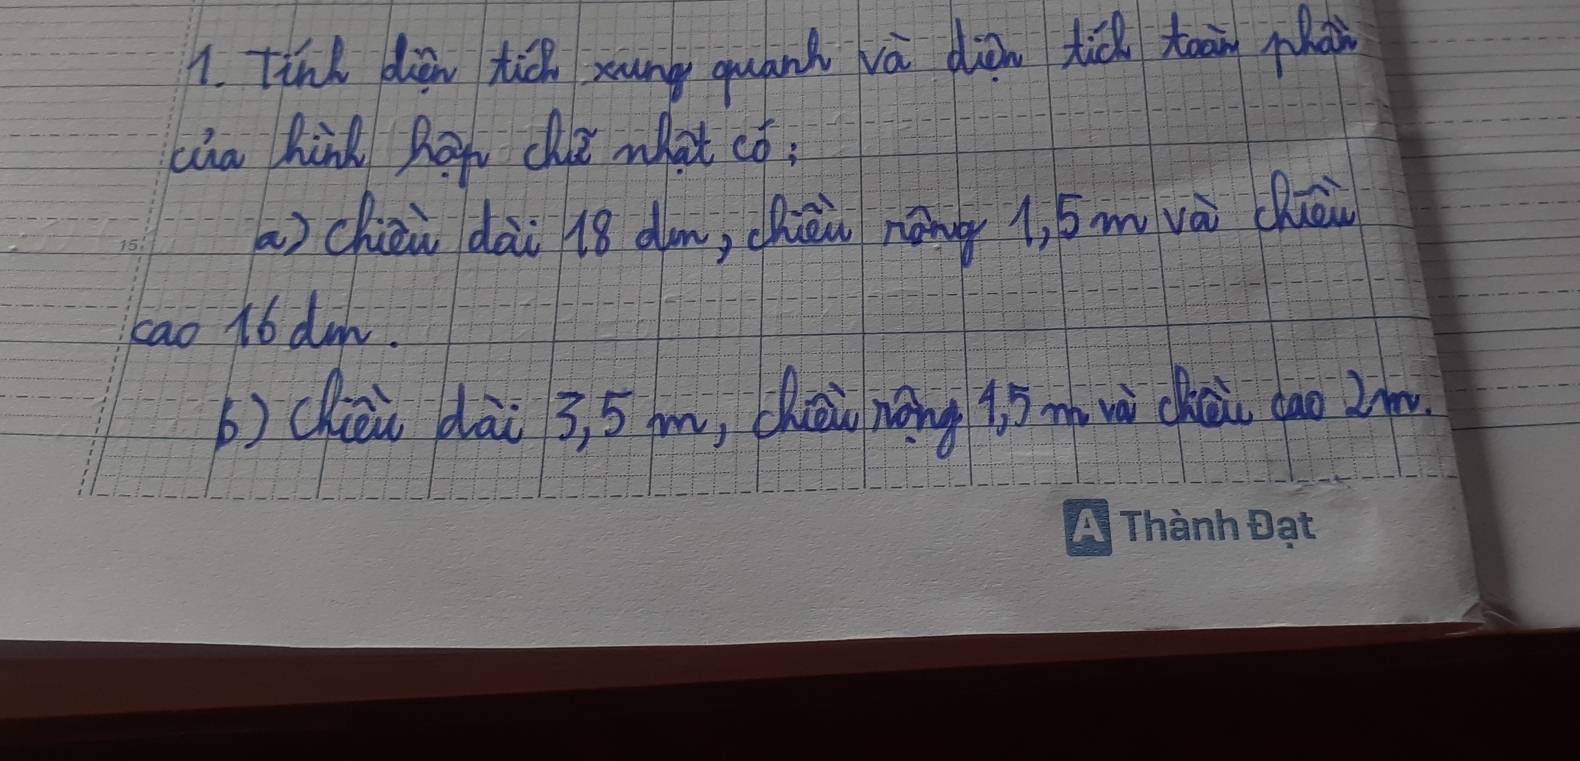 1. Tính diện tích xung quanh và diện tích toàn phần
của hình hộp chữ nhật có:
a) Chiều dài 18 dm, chiều rộng 1,5 m và chiều
15
cao 16 dm.
b) Chiều dài 3,5 m, chiều rộng 1,5 m và chiều cao 2m.
A Thành Đạt